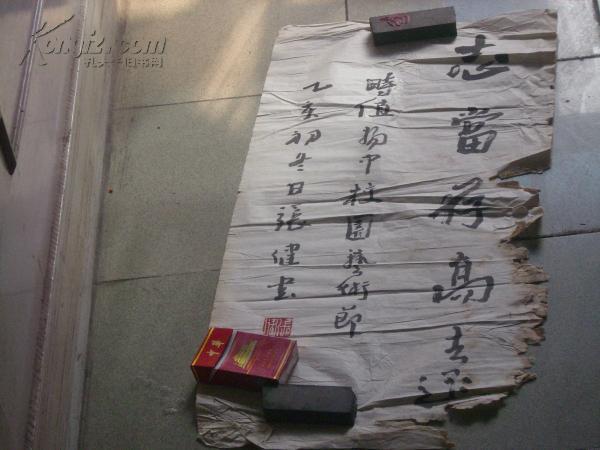 志當存高遠
時值揚中校園藝術節
乙亥初冬日張健書
Kongfz.com
孔夫子旧书网